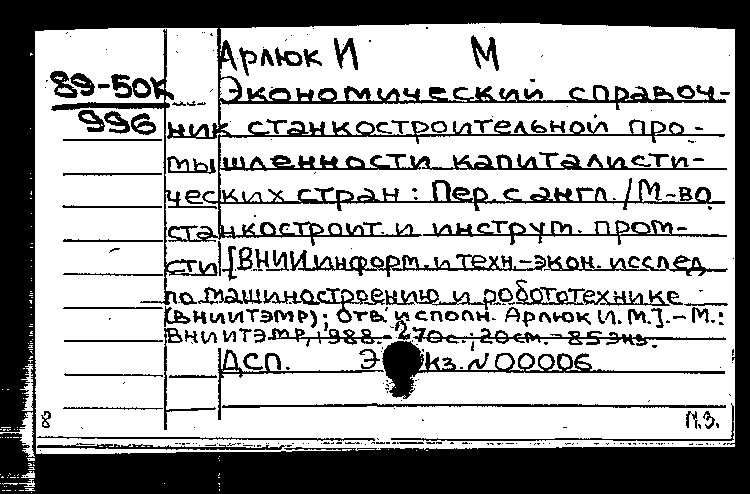 Арлюк И М
89-50к
996
Экономический справоч-
ник станкостроительной про-
мышленности капиталисти-
ческих стран: Пер. с англ. / М-во
станкостроит. и инструм. пром-
сти [ВНИИ информ. и техн.-экон. исслед.
по машиностроению и робототехнике
(ВНИИТЭМР); Отв. исполн. Арлюк И. М.]. - М.:
ВНИИТЭМР, 1988. - 270с.; 20см. - 85 экз.
ДСП. Экз. N 00006
8